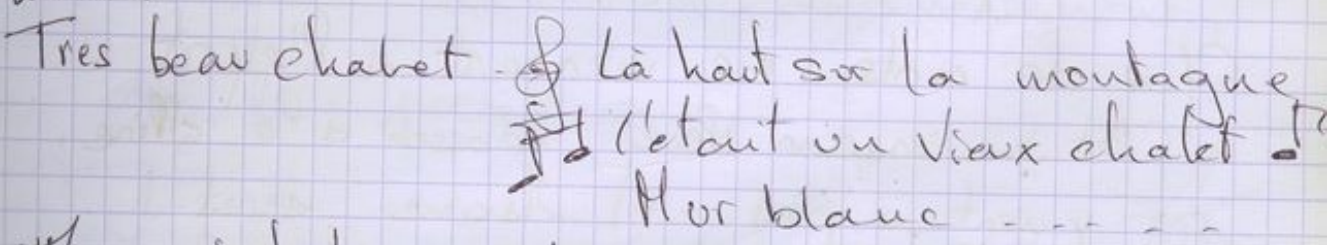 Tres beau chalet. Là haut sur la montagne
l'était un vieux chalet
Mur blanc - - - - -